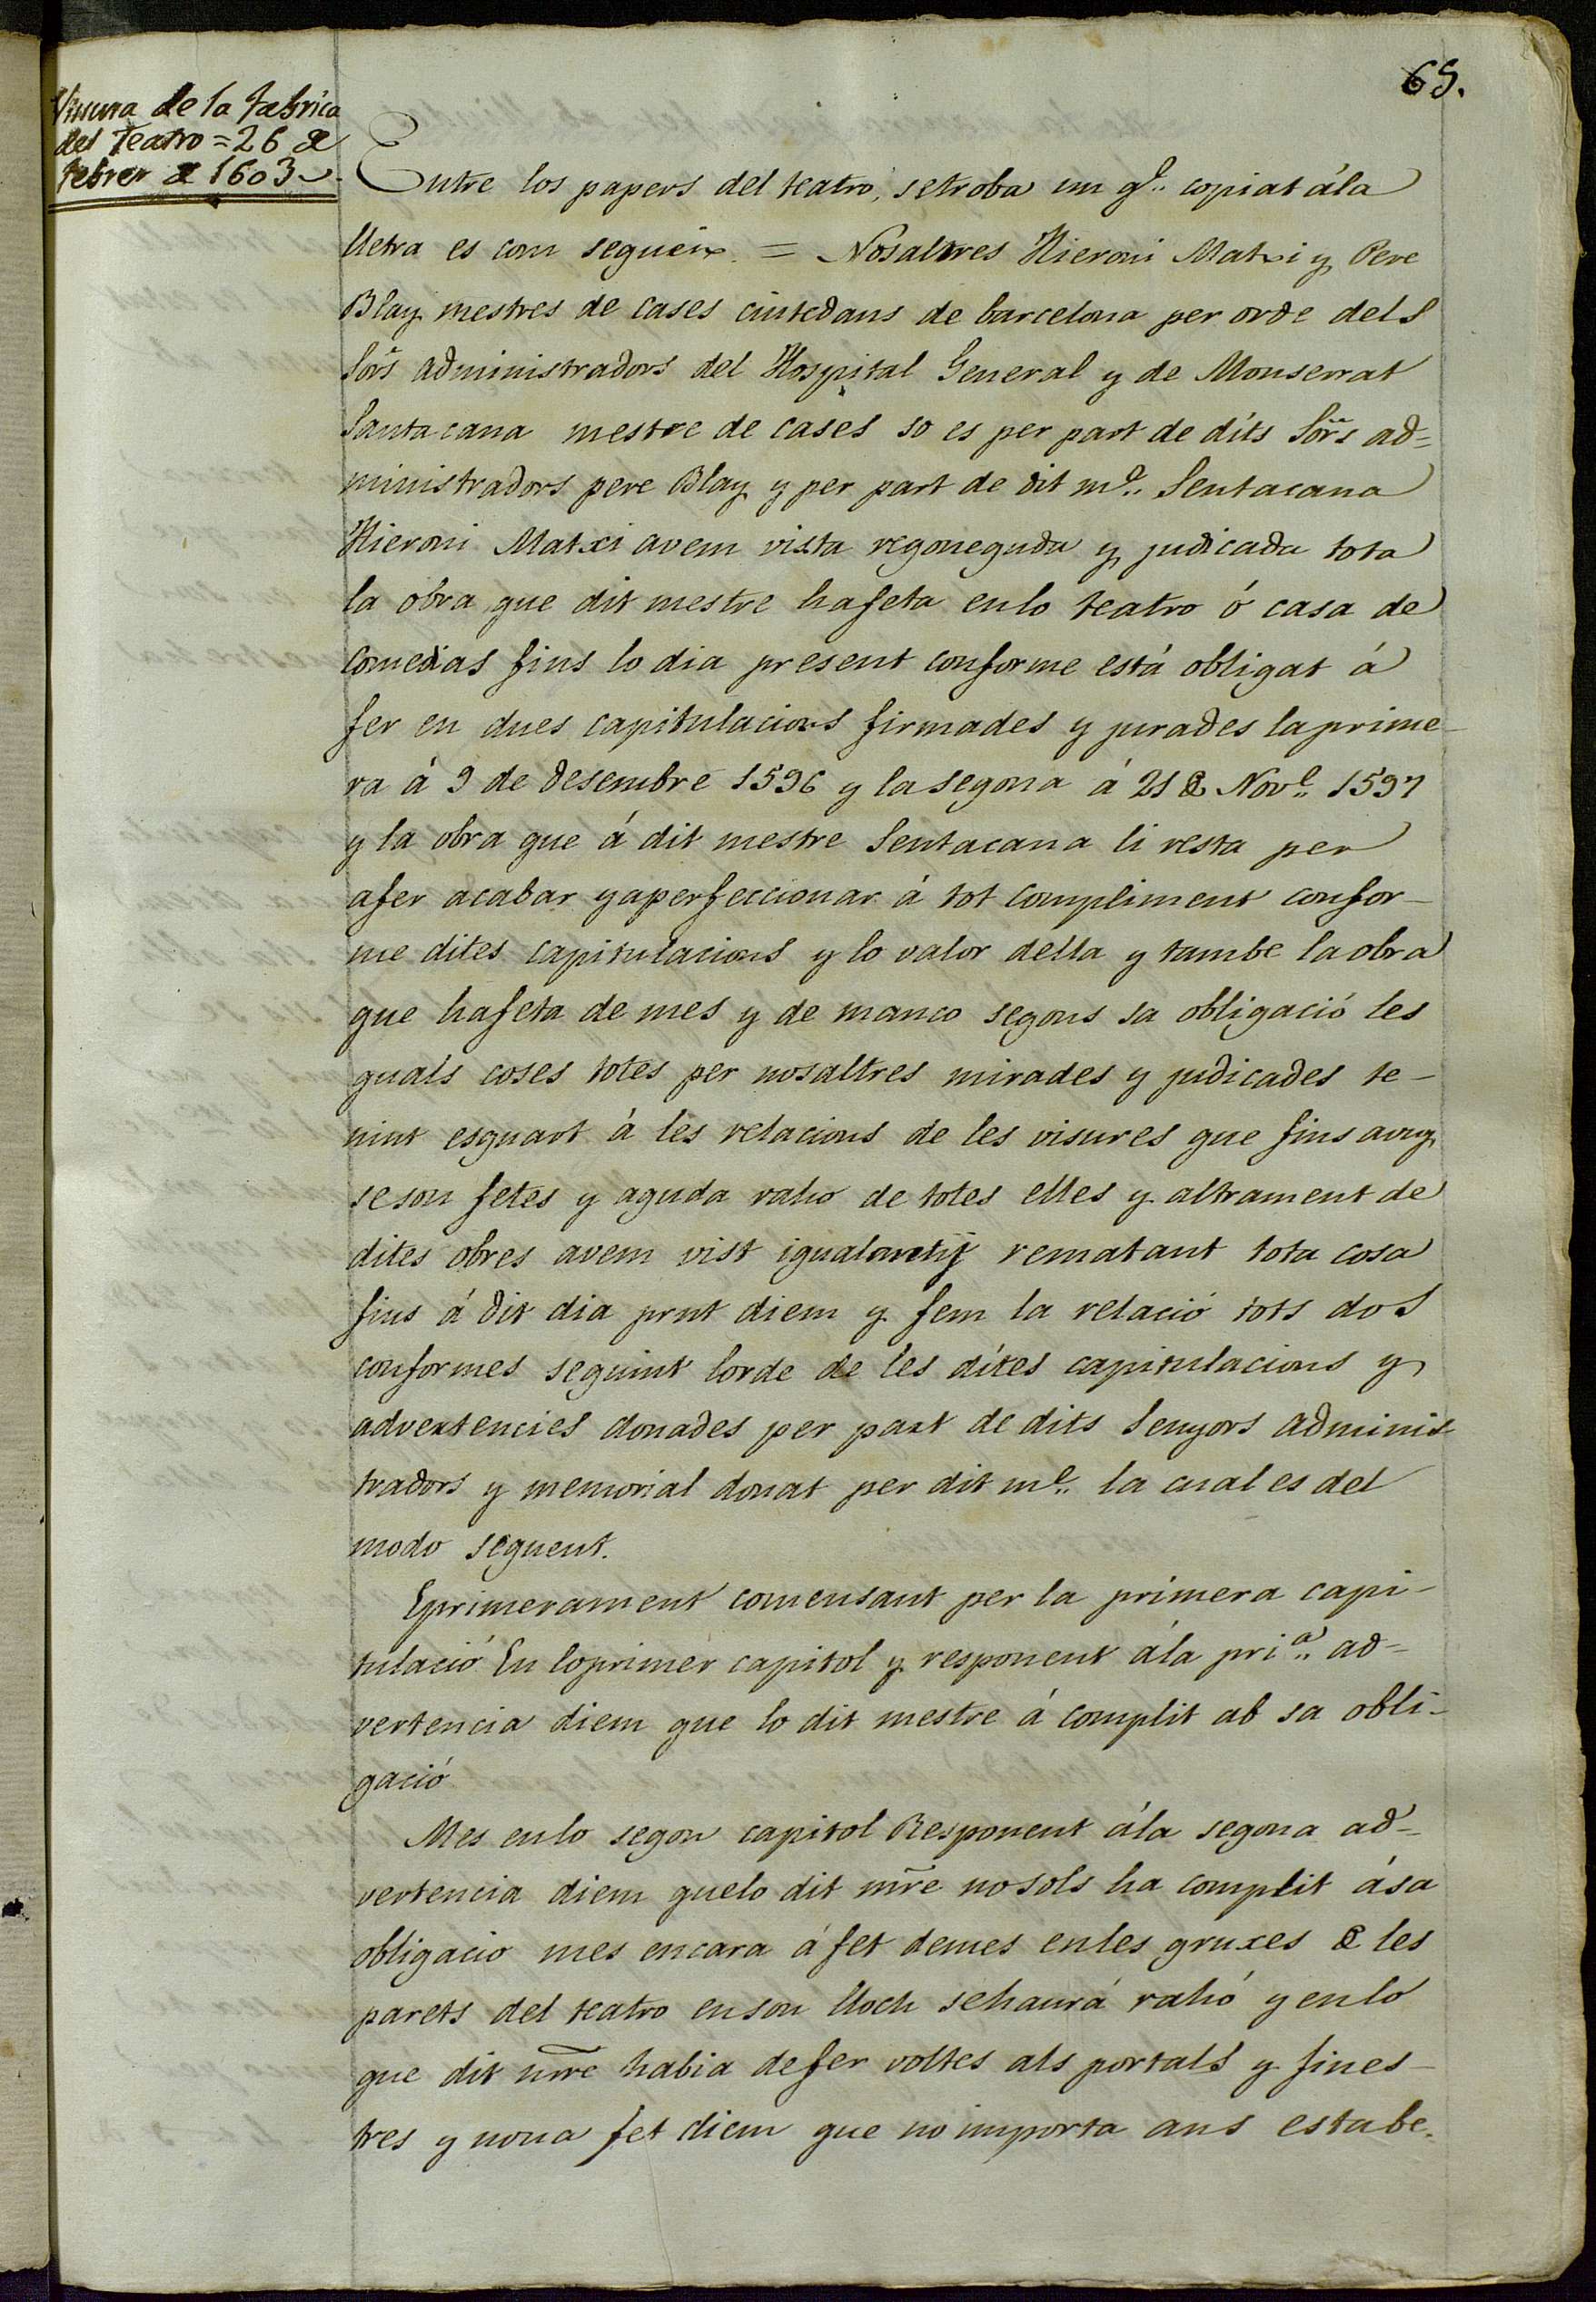 65.
Visura de la fabrica
del Teatro = 26 de
febrer de 1603
Entre los papers del teatro, setroba un ql. copiat ála
lletra es com segueix. = Nosaltres Hieroni Matxi y Pere
Blay mestres de cases ciutedans de barcelona per orde dels
Sors administradors del Hospital General y de Monserrat
Santacana mestre de cases so es per part de dits Sors ad=
ministradors pere Blay y per part de dit me. Sentacana
Hieroni Matxi avem vista regoneguda y judicada tota
la obra que dit mestre hafeta enlo teatro ó casa de
Comedias fins lo dia present conforme está obligat á
fer en dues capitulacions firmades y jurades laprime-
ra á 9 de desembre 1596 y la segona á 21 de Nove. 1597
y la obra que á dit mestre Sentacana li resta per
afer acabar yaperfeccionar á tot compliment confor-
me dites capitulacions y lo valor della y tambe la obra
que hafeta de mes y de manco segons sa obligació les
quals coses totes per nosaltres mirades y judicades te-
nint esguart á les relacions de les visures que fins avuy
seson fetes y aguda raho de totes elles y altrament de
dites obres avem vist rematant tota cosa
fins á dit dia prnt diem y fem la relació tots dos
conformes seguint lorde de les dites capitulacions y
advertencies donades per part de dits Senyors adminis
tradors y memorial donat per dit me. la cual es del
modo seguent.
Eprimerament comensant per la primera capi-
tulació En loprimer capitol y responent ála pria. ad=
vertencia diem que lo dit mestre á complit ab sa obli-
gació
Mes enlo segon capitol Responent ála segona ad-
vertencia diem quelo dit mre nosols ha complit ása
obligacio mes encara á fet demes enles gruxes de les
parets del teatro enson lloch sehaurá rahó y enlo
que dit mre habia defer voltes als portals y fines-
tres y noua fet diem que no importa ans estabe.